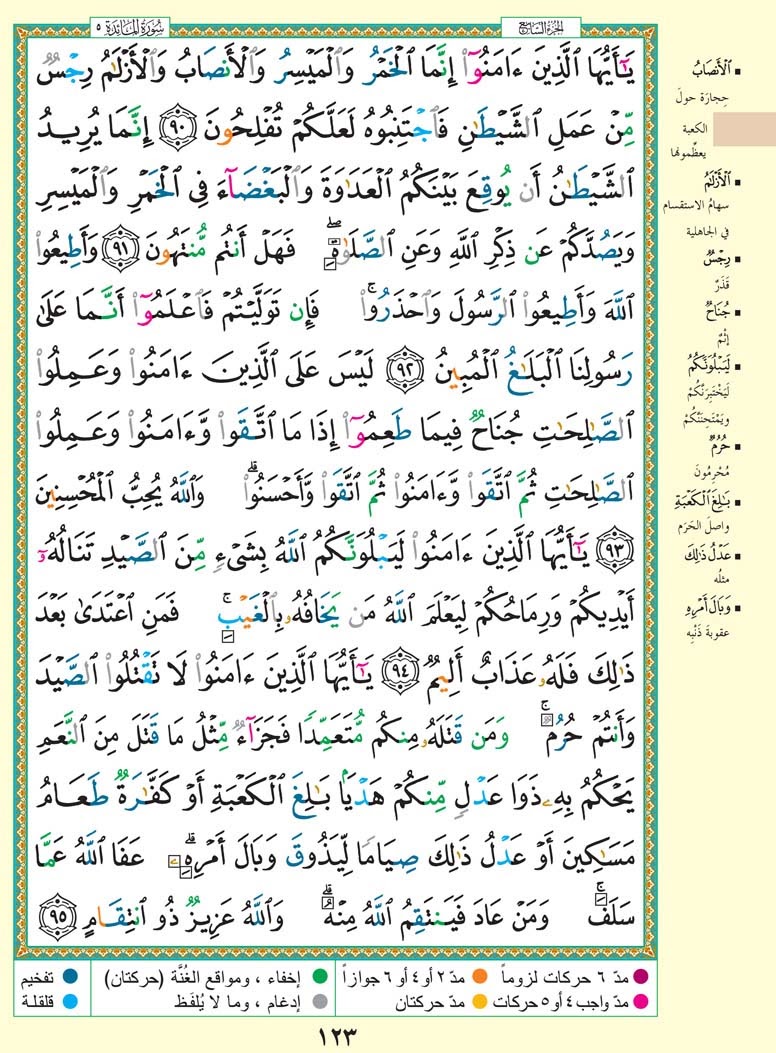 سُورَةُ المَائِدَةِ ٥
الجُزْءُ السَّابِعُ
يَٰٓأَيُّهَا ٱلَّذِينَ ءَامَنُوٓا۟ إِنَّمَا ٱلْخَمْرُ وَٱلْمَيْسِرُ وَٱلْأَنصَابُ وَٱلْأَزْلَٰمُ رِجْسٌ
مِّنْ عَمَلِ ٱلشَّيْطَٰنِ فَٱجْتَنِبُوهُ لَعَلَّكُمْ تُفْلِحُونَ ٩٠ إِنَّمَا يُرِيدُ
ٱلشَّيْطَٰنُ أَن يُوقِعَ بَيْنَكُمُ ٱلْعَدَٰوَةَ وَٱلْبَغْضَآءَ فِى ٱلْخَمْرِ وَٱلْمَيْسِرِ
وَيَصُدَّكُمْ عَن ذِكْرِ ٱللَّهِ وَعَنِ ٱلصَّلَوٰةِ ۖ فَهَلْ أَنتُم مُّنتَهُونَ ٩١ وَأَطِيعُوا۟
ٱللَّهَ وَأَطِيعُوا۟ ٱلرَّسُولَ وَٱحْذَرُوا۟ ۚ فَإِن تَوَلَّيْتُمْ فَٱعْلَمُوٓا۟ أَنَّمَا عَلَىٰ
رَسُولِنَا ٱلْبَلَٰغُ ٱلْمُبِينُ ٩٢ لَيْسَ عَلَى ٱلَّذِينَ ءَامَنُوا۟ وَعَمِلُوا۟
ٱلصَّٰلِحَٰتِ جُنَاحٌ فِيمَا طَعِمُوٓا۟ إِذَا مَا ٱتَّقَوا۟ وَّءَامَنُوا۟ وَعَمِلُوا۟
ٱلصَّٰلِحَٰتِ ثُمَّ ٱتَّقَوا۟ وَّءَامَنُوا۟ ثُمَّ ٱتَّقَوا۟ وَّأَحْسَنُوا۟ ۗ وَٱللَّهُ يُحِبُّ ٱلْمُحْسِنِينَ
٩٣ يَٰٓأَيُّهَا ٱلَّذِينَ ءَامَنُوا۟ لَيَبْلُوَنَّكُمُ ٱللَّهُ بِشَىْءٍ مِّنَ ٱلصَّيْدِ تَنَالُهُۥٓ
أَيْدِيكُمْ وَرِمَاحُكُمْ لِيَعْلَمَ ٱللَّهُ مَن يَخَافُهُۥ بِٱلْغَيْبِ ۚ فَمَنِ ٱعْتَدَىٰ بَعْدَ
ذَٰلِكَ فَلَهُۥ عَذَابٌ أَلِيمٌ ٩٤ يَٰٓأَيُّهَا ٱلَّذِينَ ءَامَنُوا۟ لَا تَقْتُلُوا۟ ٱلصَّيْدَ
وَأَنتُمْ حُرُمٌ ۚ وَمَن قَتَلَهُۥ مِنكُم مُّتَعَمِّدًا فَجَزَآءٌ مِّثْلُ مَا قَتَلَ مِنَ ٱلنَّعَمِ
يَحْكُمُ بِهِۦ ذَوَا عَدْلٍ مِّنكُمْ هَدْيًۢا بَٰلِغَ ٱلْكَعْبَةِ أَوْ كَفَّٰرَةٌ طَعَامُ
مَسَٰكِينَ أَوْ عَدْلُ ذَٰلِكَ صِيَامًا لِّيَذُوقَ وَبَالَ أَمْرِهِۦ ۗ عَفَا ٱللَّهُ عَمَّا
سَلَفَ ۚ وَمَنْ عَادَ فَيَنتَقِمُ ٱللَّهُ مِنْهُ ۗ وَٱللَّهُ عَزِيزٌ ذُو ٱنتِقَامٍ ٩٥
▪ ٱلْأَنصَابُ
حِجارَة حولَ
الكعبة
يعظِّمونها
▪ ٱلْأَزْلَٰمُ
سهامُ الاستقسام
في الجاهلية
▪ رِجْسٌ
قَذَرٌ
▪ جُنَاحٌ
إثمٌ
▪ لَيَبْلُوَنَّكُمُ
لَيَخْتَبِرَنَّكُمْ
ويَمْتَحِنَنَّكُمْ
▪ حُرُمٌ
مُحْرِمُونَ
▪ بَٰلِغَ ٱلْكَعْبَةِ
واصلَ الحَرَم
▪ عَدْلُ ذَٰلِكَ
مثلُه
▪ وَبَالَ أَمْرِهِ
عقوبةَ ذَنْبِه
● مدّ ٦ حركات لزوماً ● مدّ ٢ أو ٤ أو ٦ جوازاً ● إخفاء ، ومواقع الغُنَّة (حركتان) ● تفخيم
● مدّ واجب ٤ أو ٥ حركات ● مدّ حركتان ● إدغام ، وما لا يُلفَظ ● قلقلة
١٢٣